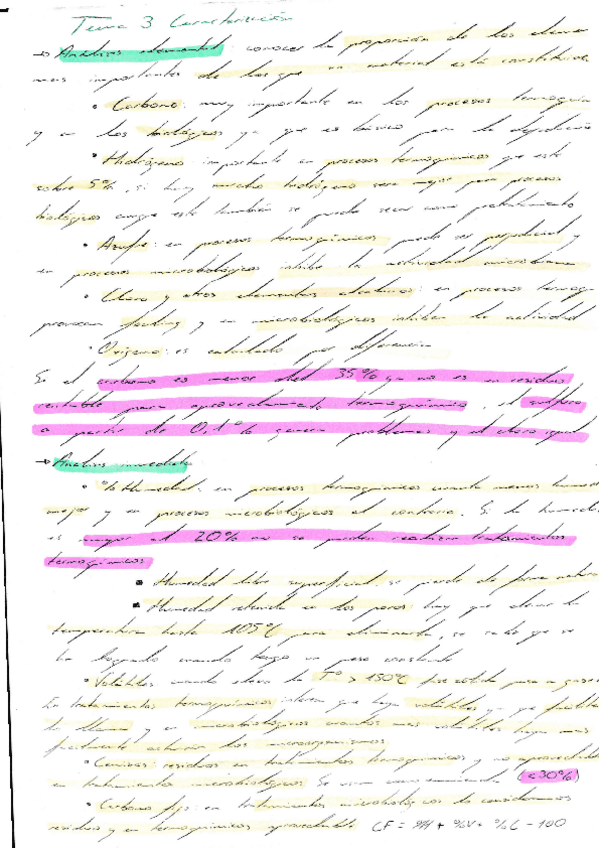 Tema 3 Caracterización
→ Análisis elemental: conocer la proporción de los elemen
mas importantes de los que un material está constituido
• Carbono: muy importante en los procesos termoquim
y en los biológicos ya que es básico para la degradación
• Hidrógeno importante en procesos termoquímicos que este
sobre 5%, si hay mucho hidrógeno sera mejor para procesos
biológicos aunque este también se puede secar como pretratamiento
• Azufre: en procesos termoquímicos puede ser perjudicial y
en procesos microbiológicos inhibe la actividad microbiana
• Cloro y otros elementos : en procesos termoq
provocan fouling y en microbiológicos inhiben la actividad
• Oxígeno: es calculado por diferencia
Si el carbono es menor del 35% ya no es un residuo
rentable para aprovechamiento termoquímico, el azufre
a partir de 0,1% genera problemas y el cloro igual
→ Análisis inmediato
• % Humedad: en procesos termoquímicos cuanto menos humed
mejor y en procesos microbiológicos al contrario. Si la humedad
es mayor al 20% no se pueden realizar tratamientos
termoquímicos
▪ Humedad libre superficial: se pierde de forma natural
▪ Humedad retenida en los poros: hay que elevar la
temperatura hasta 105°C para eliminarla, se sabe que se
ha logrado cuando tengo un peso constante
• Volátiles cuando eleva la Tª > 150°C pasa a gases
En tratamientos termoquímicos interesa que haya volátiles ya que
la llama y en microbiológicos cuantos mas volátiles haya mas
facilmente actuarán los microorganismos
• Cenizas: residuos en tratamientos termoquímicos y no aprovechables
en tratamientos microbiológicos. Se usan como (<30%)
• Carbono fijo: en tratamientos microbiológicos lo consideramos
residuo y en termoquímicos aprovechable CF = %H + %V + %C - 100